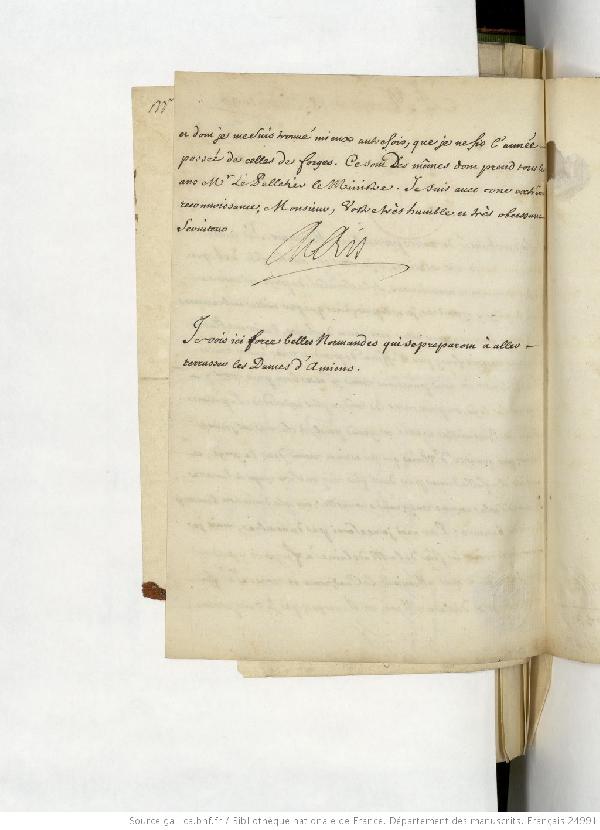 et dont je me suis trouvé mieux autrefois, que je ne fis l'année
passée de celles des forges. Ce sont Des mêmes dont prend tous les
ans Mr. Le Pelletier le Ministre. Je suis avec une extrême
reconnoissance, Monsieur, Votre très humble et très obeissant
Serviteur
Je vois ici force belles Normandes qui se preparent à aller
terrasser les Dames d'Amiens.
Source gallica.bnf.fr / Bibliothèque nationale de France. Département des manuscrits. Français 24991